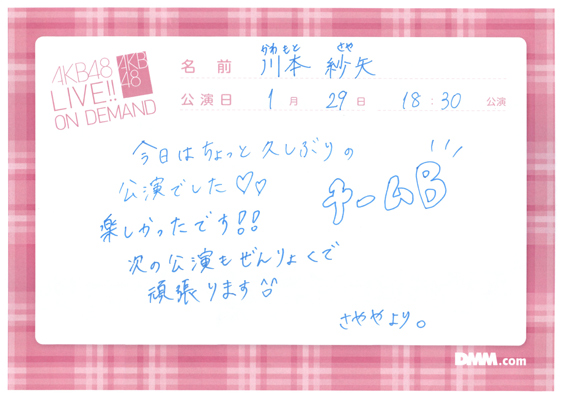 AKB48
LIVE!!
ON DEMAND
AKB
48
かわもと さや
名前 川本 紗矢
公演日 1月 29日 18:30 公演
今日はちょっと久しぶりの
公演でした♡♡
チームB
楽しかったです!!
次の公演もぜんりょくで
頑張ります
さややより。
DMM.com